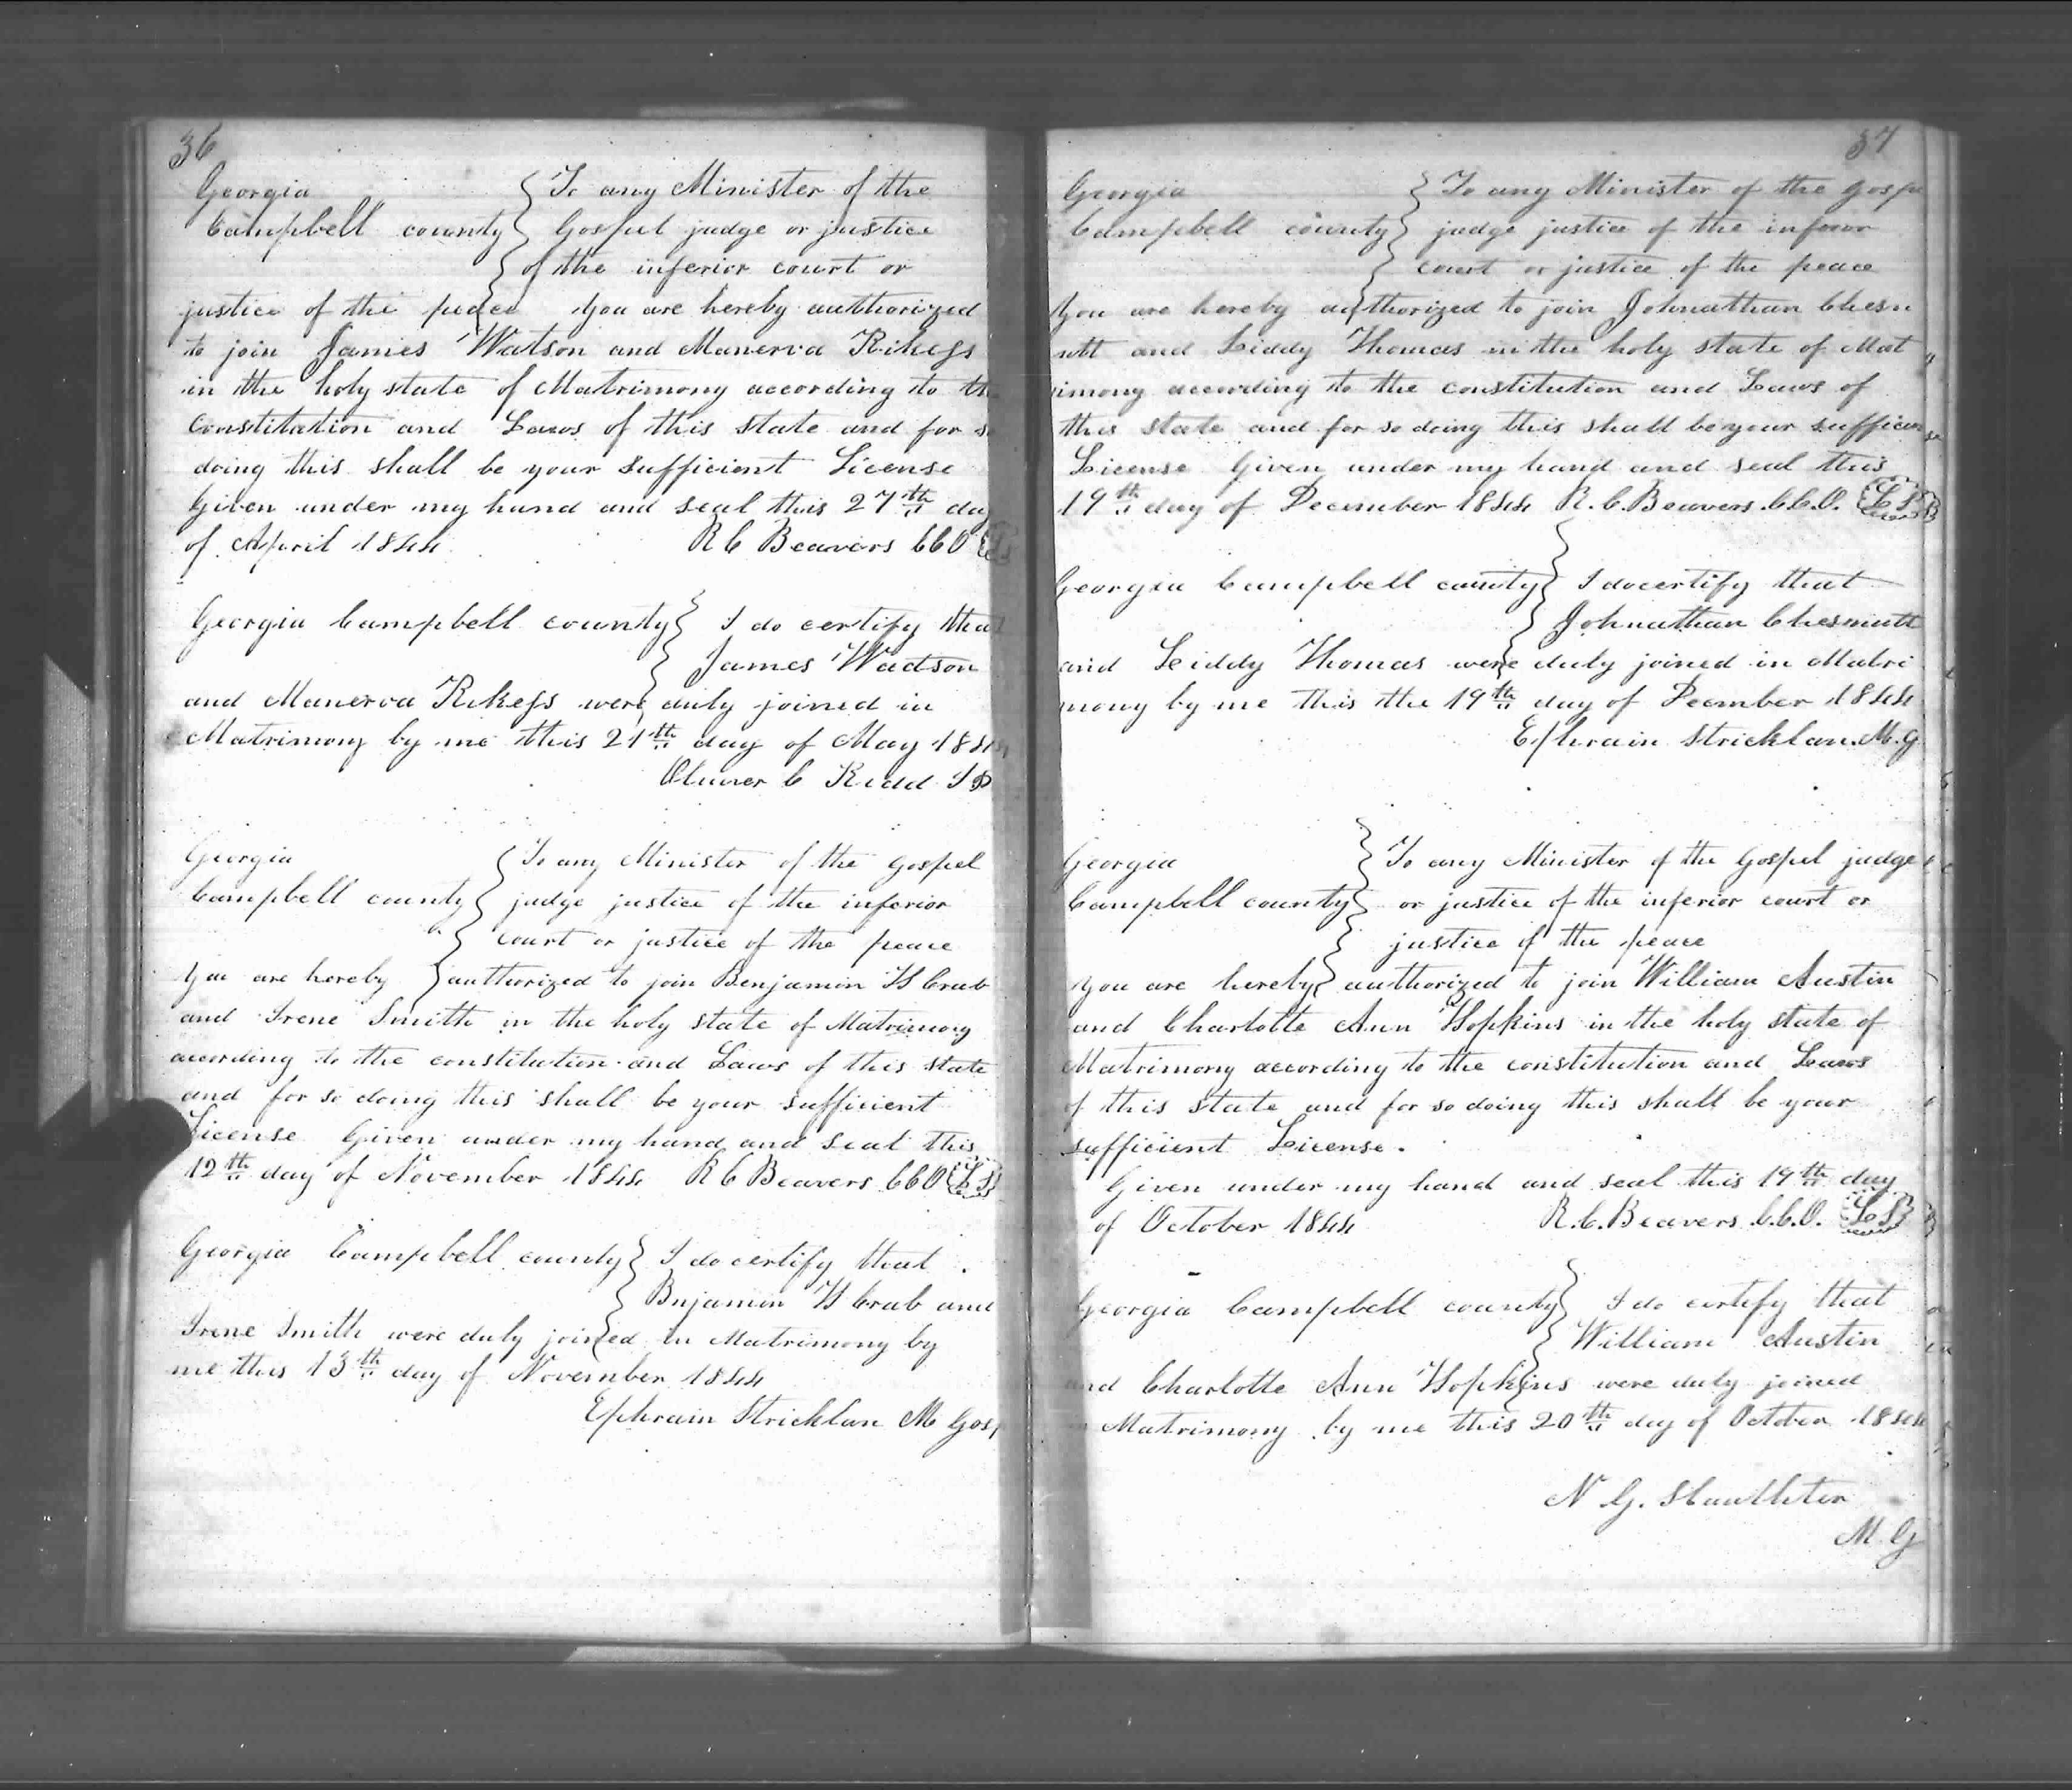 36
Georgia
Campbell county
To any Minister of the
Gospel judge or justice
of the inferior court or
justice of the peace you are hereby authorized
to join James Watson and Manerva Rikess
in the holy state of Matrimony according to the
constitution and Laws of this state and for so
doing this shall be your sufficient License
Given under my hand and seal this 27th day
of April 1844 R C Beavers CCO LS
Georgia Campbell county I do certify that
James Watson
and Manerva Rikess were duly joined in
Matrimony by me this 21th day of May 1844
Oliver C Kidd JP
Georgia
Campbell county
To any Minister of the Gospel
judge justice of the inferior
court or justice of the peace
You are hereby authorized to join Benjamin H Crab
and Irene Smith in the holy state of Matrimony
according to the constitution and Laws of this state
and for so doing this shall be your sufficient
License Given under my hand and seal this
12th day of November 1844 R C Beavers CCO LS
Georgia Campbell county I do certify that
Bnjamin H Crab and
Irene Smith were duly joined in Matrimony by
me this 13th day of November 1844
Ephrain Stricklan M Gosp
37
Georgia
Campbell county
To any Minister of the Gospe
judge justice of the inferior
court or justice of the peace
you are hereby authorized to join Johnathan Chesn
utt and Liddy Thomas in the holy state of Mat
rimony according to the constitution and Laws of
this state and for so doing this shall be your sufficien
License Given under my hand and seal this
19th day of December 1844 R. C. Beavers. C.C.O. LS
Georgia Campbell county I do certify that
Johnathan Chesnutt
and Liddy Thomas were duly joined in Matri
mony by me this the 19th day of Decmber 1844
Ephrain Stricklan. M. G.
Georgia
Campbell county
To any Minister of the Gospel judge
or justice of the inferior court or
justice of the peace
you are hereby authorized to join William Austin
and Charlotte Ann Hopkins in the holy state of
Matrimony according to the constitution and Laws
of this state and for so doing this shall be your
sufficient License.
Given under my hand and seal this 19th day
of October 1844 R. C. Beavers. C.C.O. LS
Georgia Campbell county I do certify that
William Austin
and Charlotte Ann Hopkins were duly joined
in Matrimony by me this 20th day of October 1844
N. G.
M. G